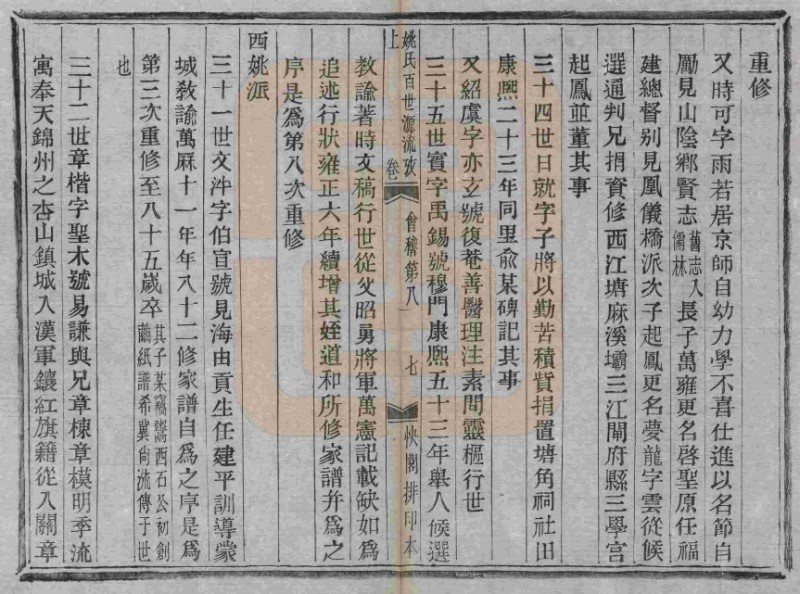 重修
又時可字雨若居京師自幼力學不喜仕進以名節自
勵見山陰鄉賢志舊志入儒林長子萬雍更名啓聖原任福
建總督别見鳳儀橋派次子起鳳更名夢龍字雲從候
選通判兄捐資修西江塘麻溪壩三江閘府縣三學宮
起鳳並董其事
三十四世日就字子將以勤苦積貲捐置塘角祠社田
康熙二十三年同里俞某碑記其事
又紹虞字亦玄號復菴善醫理注素問靈樞行世
三十五世賓字禹錫號穆門康熙五十三年舉人候選
教諭著時文稿行世從父昭勇將軍萬憲記載缺如爲
追述行狀雍正六年續增其姪道和所修家譜幷爲之
序是爲第八次重修
西姚派
三十一世文泮字伯宣號見海由貢生任建平訓導蒙
城敎諭萬厤十一年年八十二修家譜自爲之序是爲
第三次重修至八十五歲卒其子某竊鬻西石公初創繭紙譜希冀尙流傳于世
也
三十二世章楷字聖木號易謙與兄章棟章模明季流
寓奉天錦州之杏山鎮城入漢軍鑲紅旗籍從入關章
姚氏百世源流攷 卷上 會稽第八 七 快閣排印本